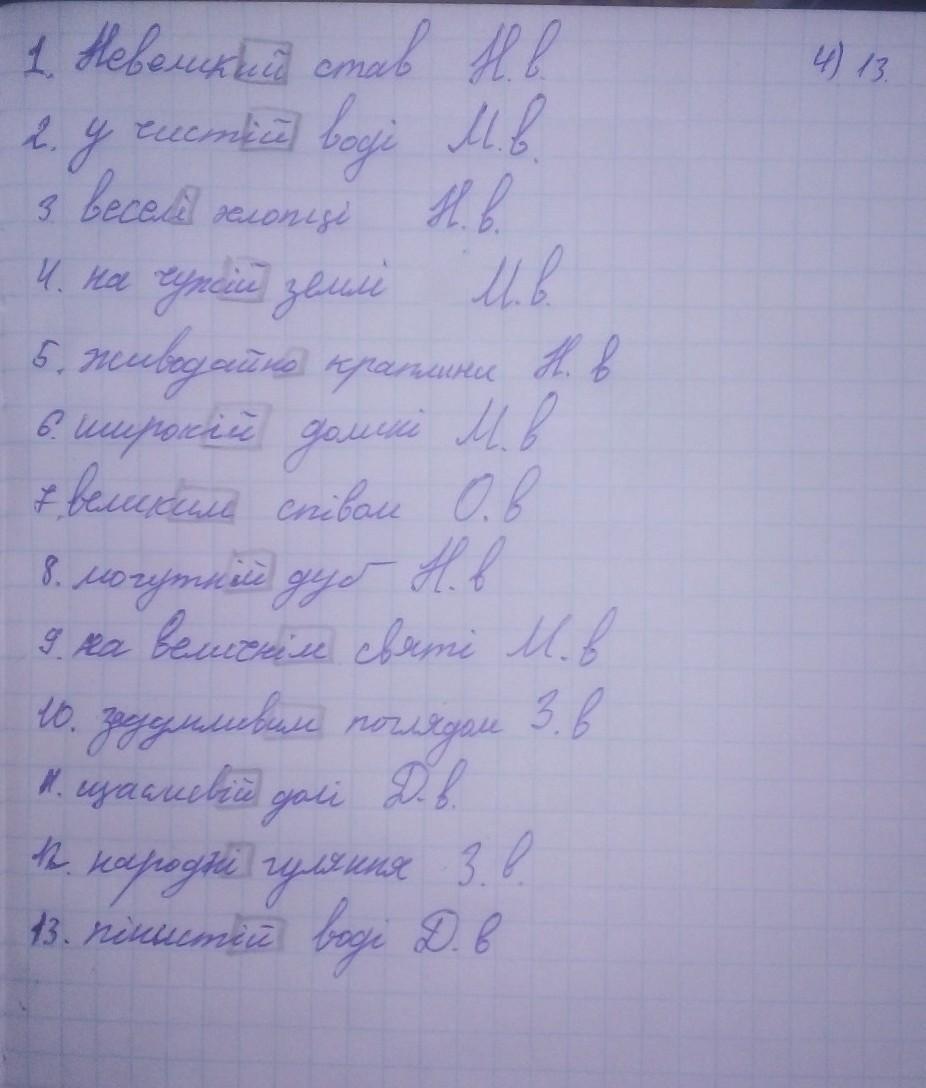 1. Невеликий став Н.в. 4) 13.
2. у чистій воді М.в.
3 веселі хлопці Н.в.
4. на чужій землі М.в.
5. живодайна краплина Н.в
6. широкій долині М.в
7. великим співом О.в
8. могутній дуб Н.в
9. на величнім святі М.в
10. задумливим поглядом З.в
11. щасливій долі Д.в.
12. народні гуляння З.в.
13. пінистій воді Д.в